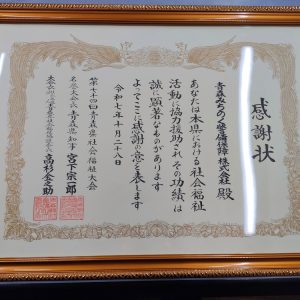 感謝状
青森みちのく警備保障株式会社 殿
あなたは本県における社会福祉
活動に協力援助されその功績は
誠に顕著なものがあります
よってここに感謝の意を表します
令和七年十月二十八日
第七十四回青森県社会福祉大会
名誉大会長 青森県知事 宮下宗一郎
高杉金之助